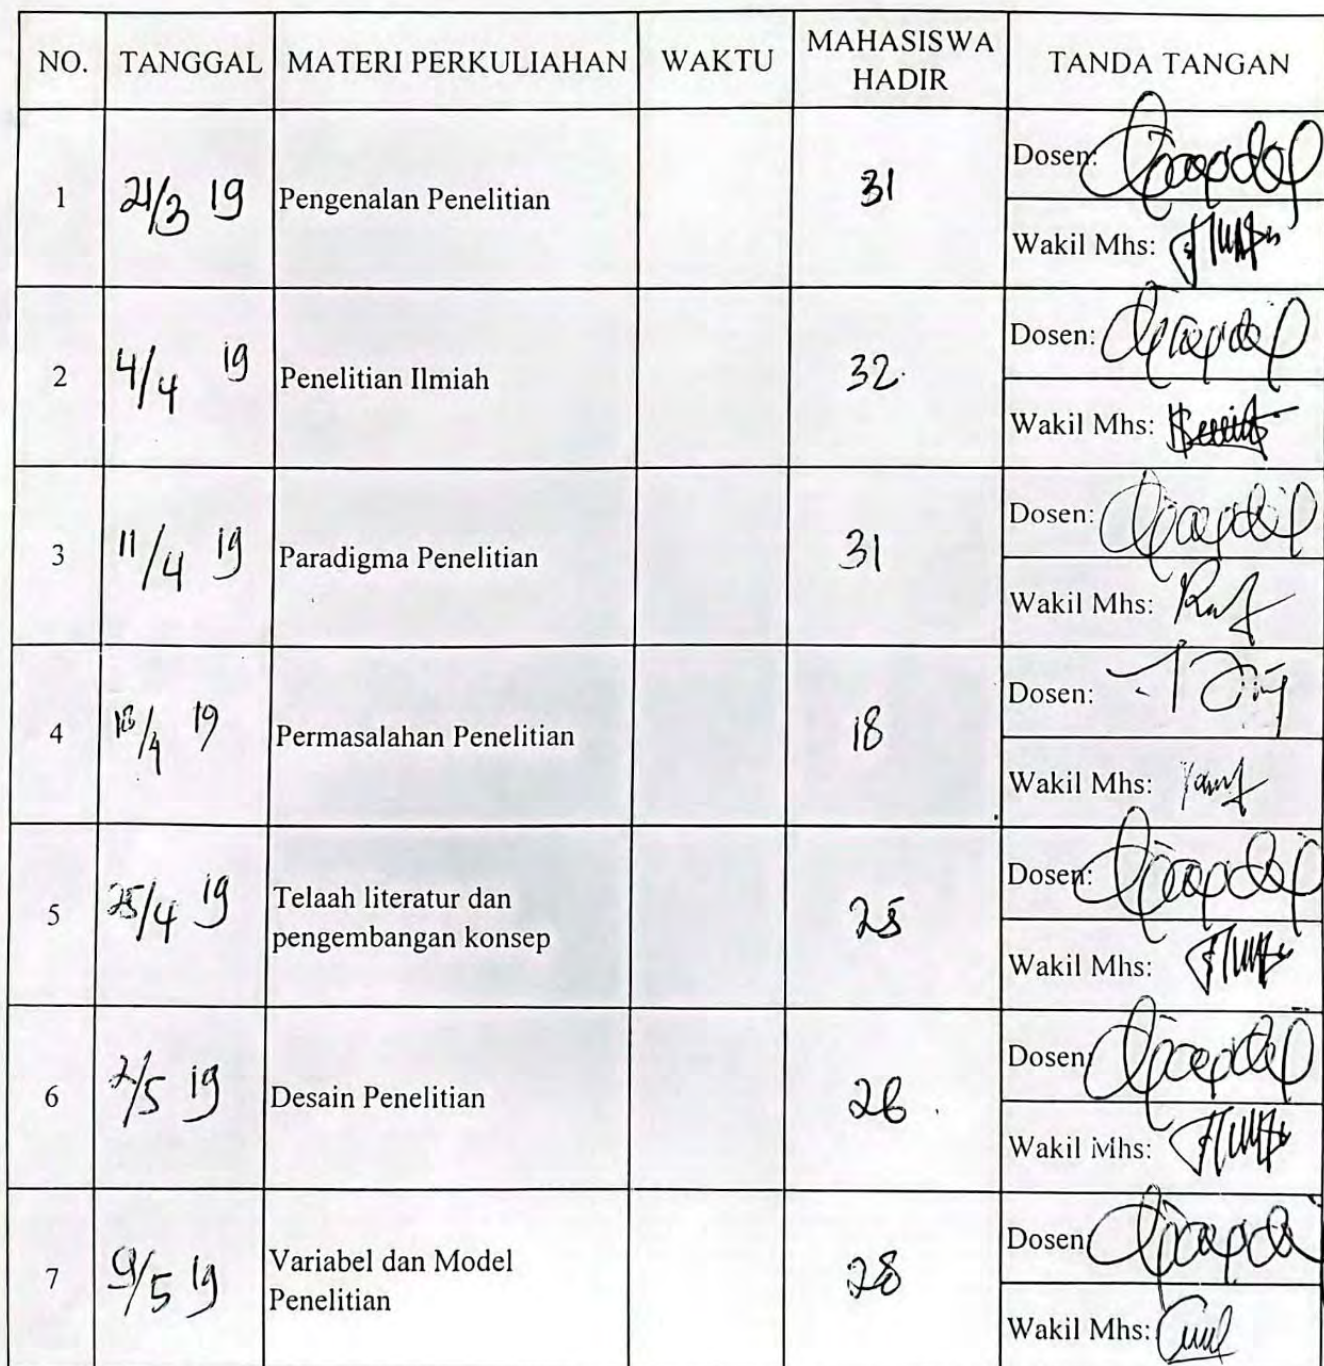 NO. TANGGAL MATERI PERKULIAHAN WAKTU MAHASISWA HADIR TANDA TANGAN
1 21/3 19 Pengenalan Penelitian 31 Dosen:
Wakil Mhs:
2 4/4 19 Penelitian Ilmiah 32. Dosen:
Wakil Mhs:
3 11/4 19 Paradigma Penelitian 31 Dosen:
Wakil Mhs:
4 18/4 19 Permasalahan Penelitian 18 Dosen:
Wakil Mhs:
5 25/4 19 Telaah literatur dan
pengembangan konsep 25 Dosen:
Wakil Mhs:
6 2/5 19 Desain Penelitian 26 Dosen:
Wakil Mhs:
7 9/5 19 Variabel dan Model
Penelitian 28 Dosen:
Wakil Mhs: